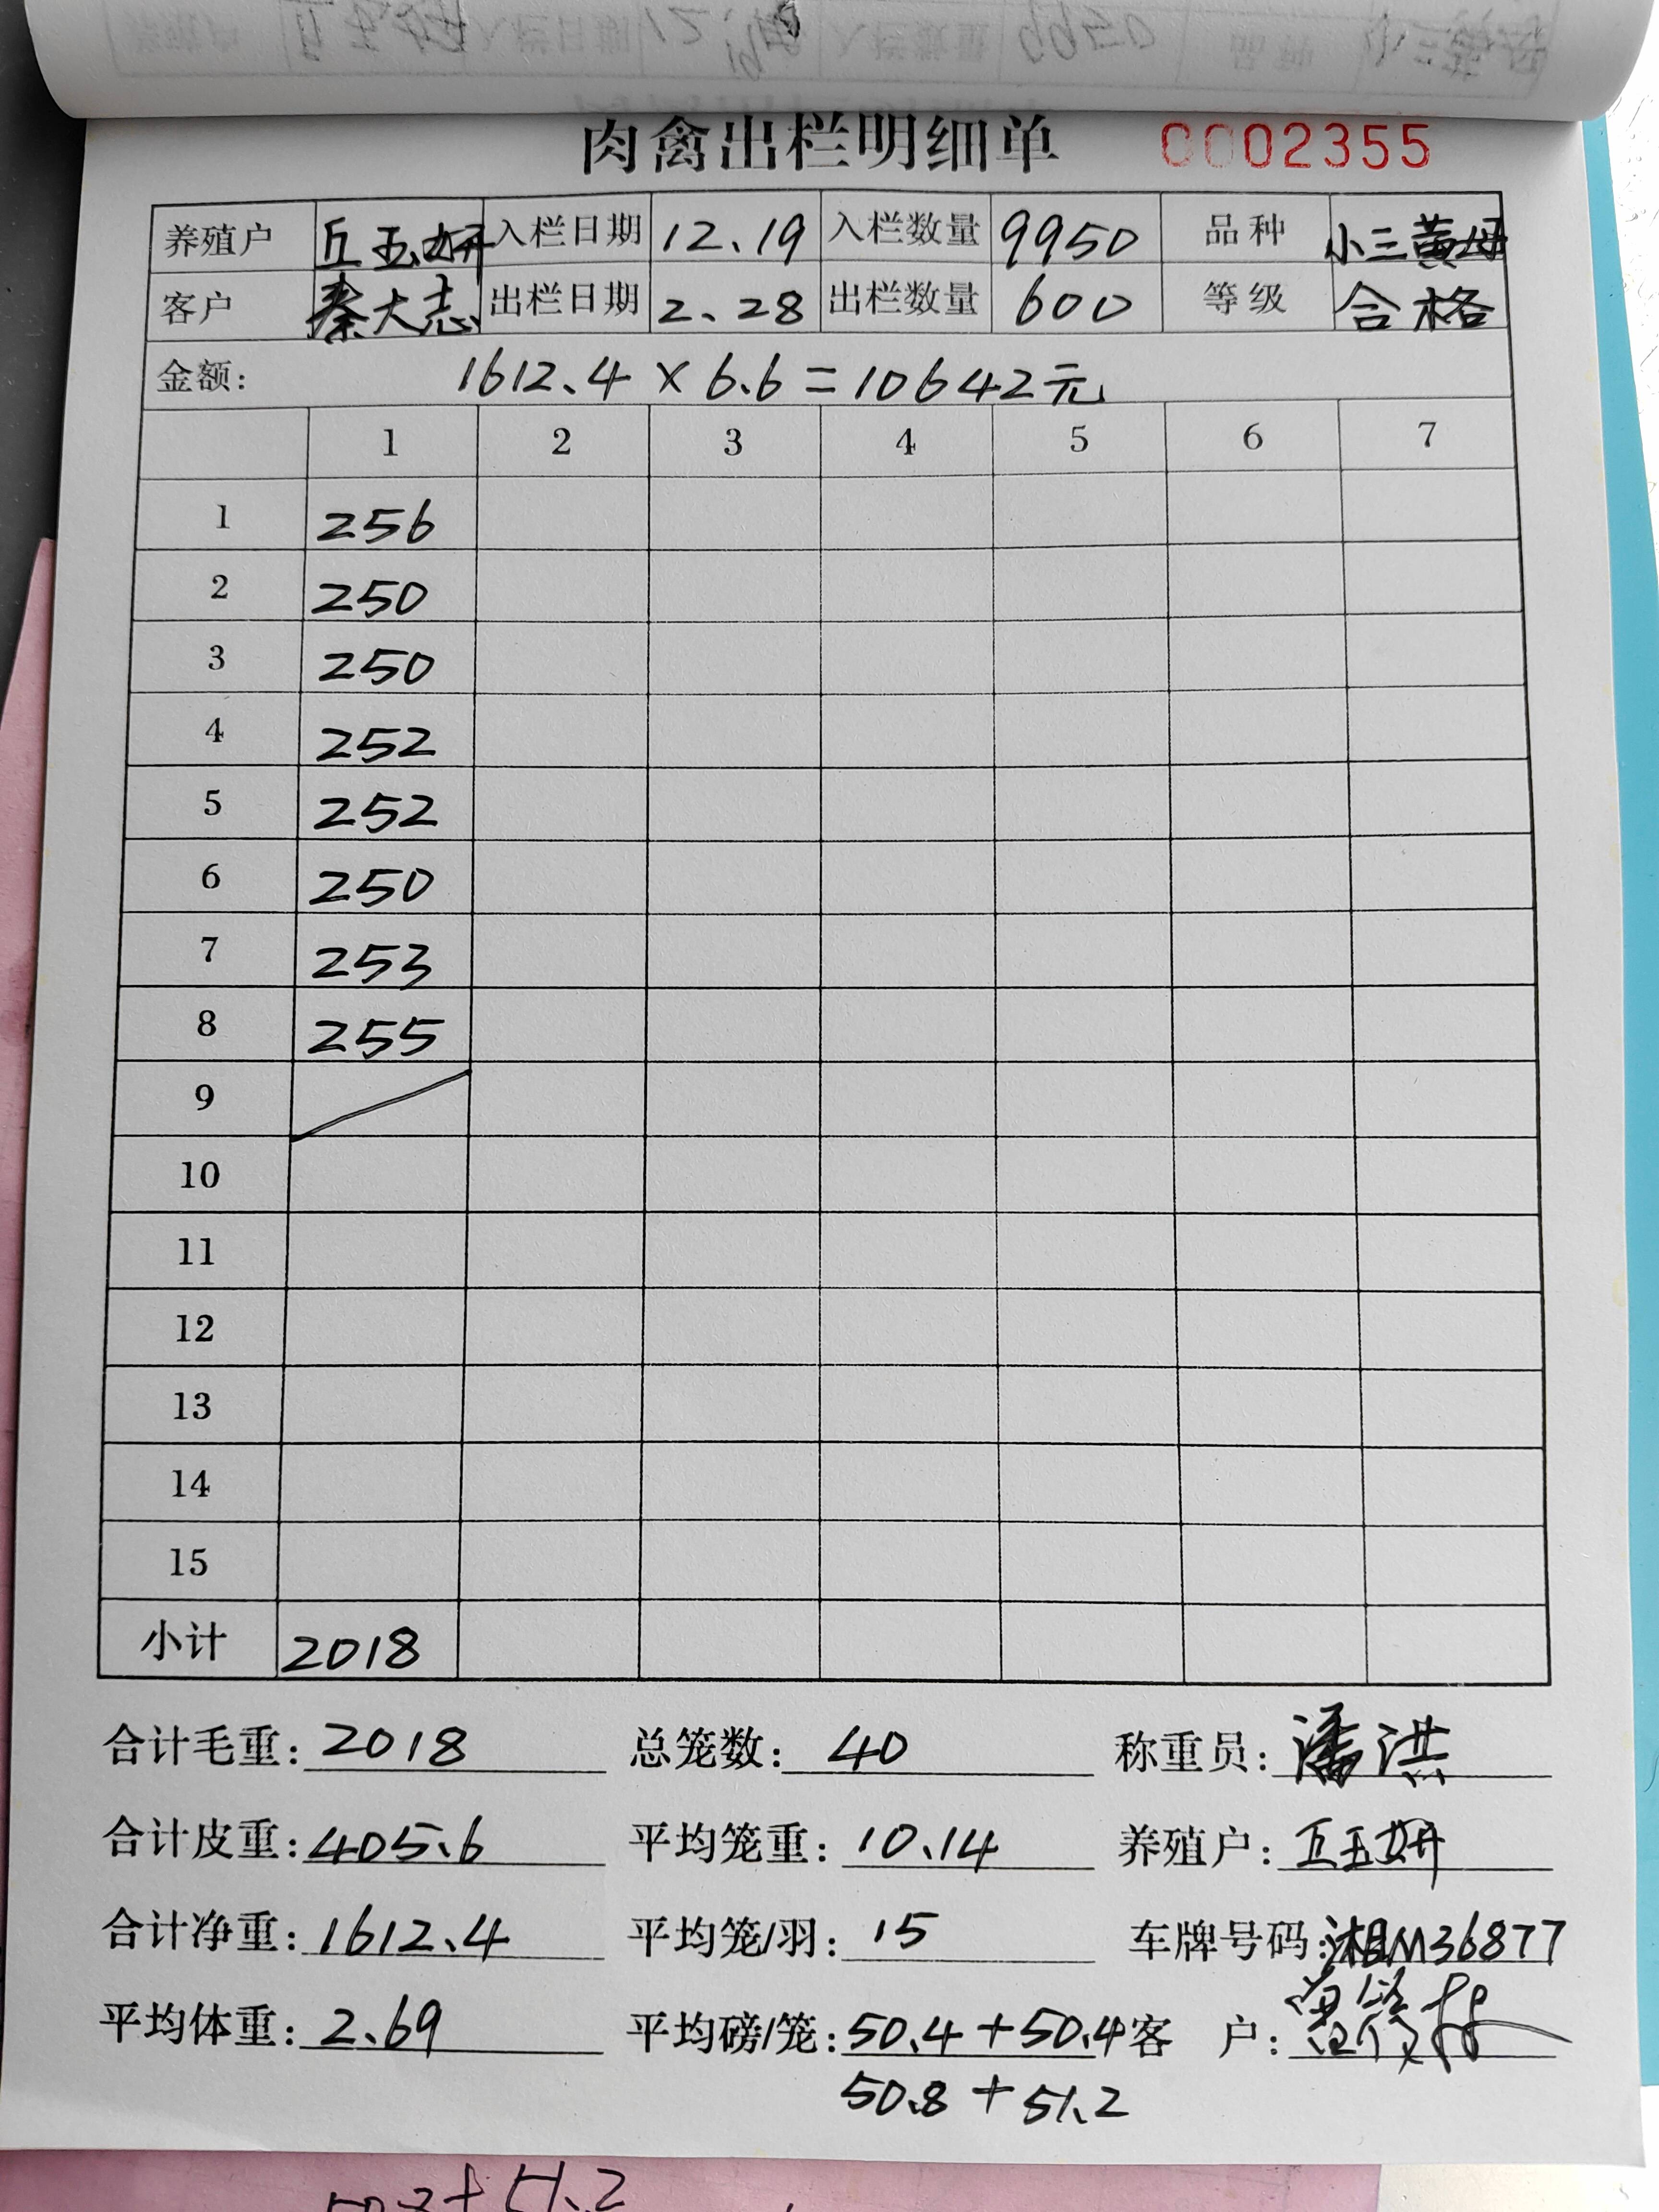 肉禽出栏明细单 0002355
养殖户 丘玉妍 入栏日期 12.19 入栏数量 9950 品种 小三黄母
客户 秦大志 出栏日期 2.28 出栏数量 600 等级 合格
金额: 1612.4 × 6.6 = 10642元
1 2 3 4 5 6 7
1 256
2 250
3 250
4 252
5 252
6 250
7 253
8 255
9
10
11
12
13
14
15
小计 2018
合计毛重: 2018 总笼数: 40 称重员: 潘洪
合计皮重: 405.6 平均笼重: 10.14 养殖户: 丘玉妍
合计净重: 1612.4 平均笼/羽: 15 车牌号码: 湘M36877
平均体重: 2.69 平均磅/笼: 50.4+50.4 客户:
50.8+51.2
+51.2